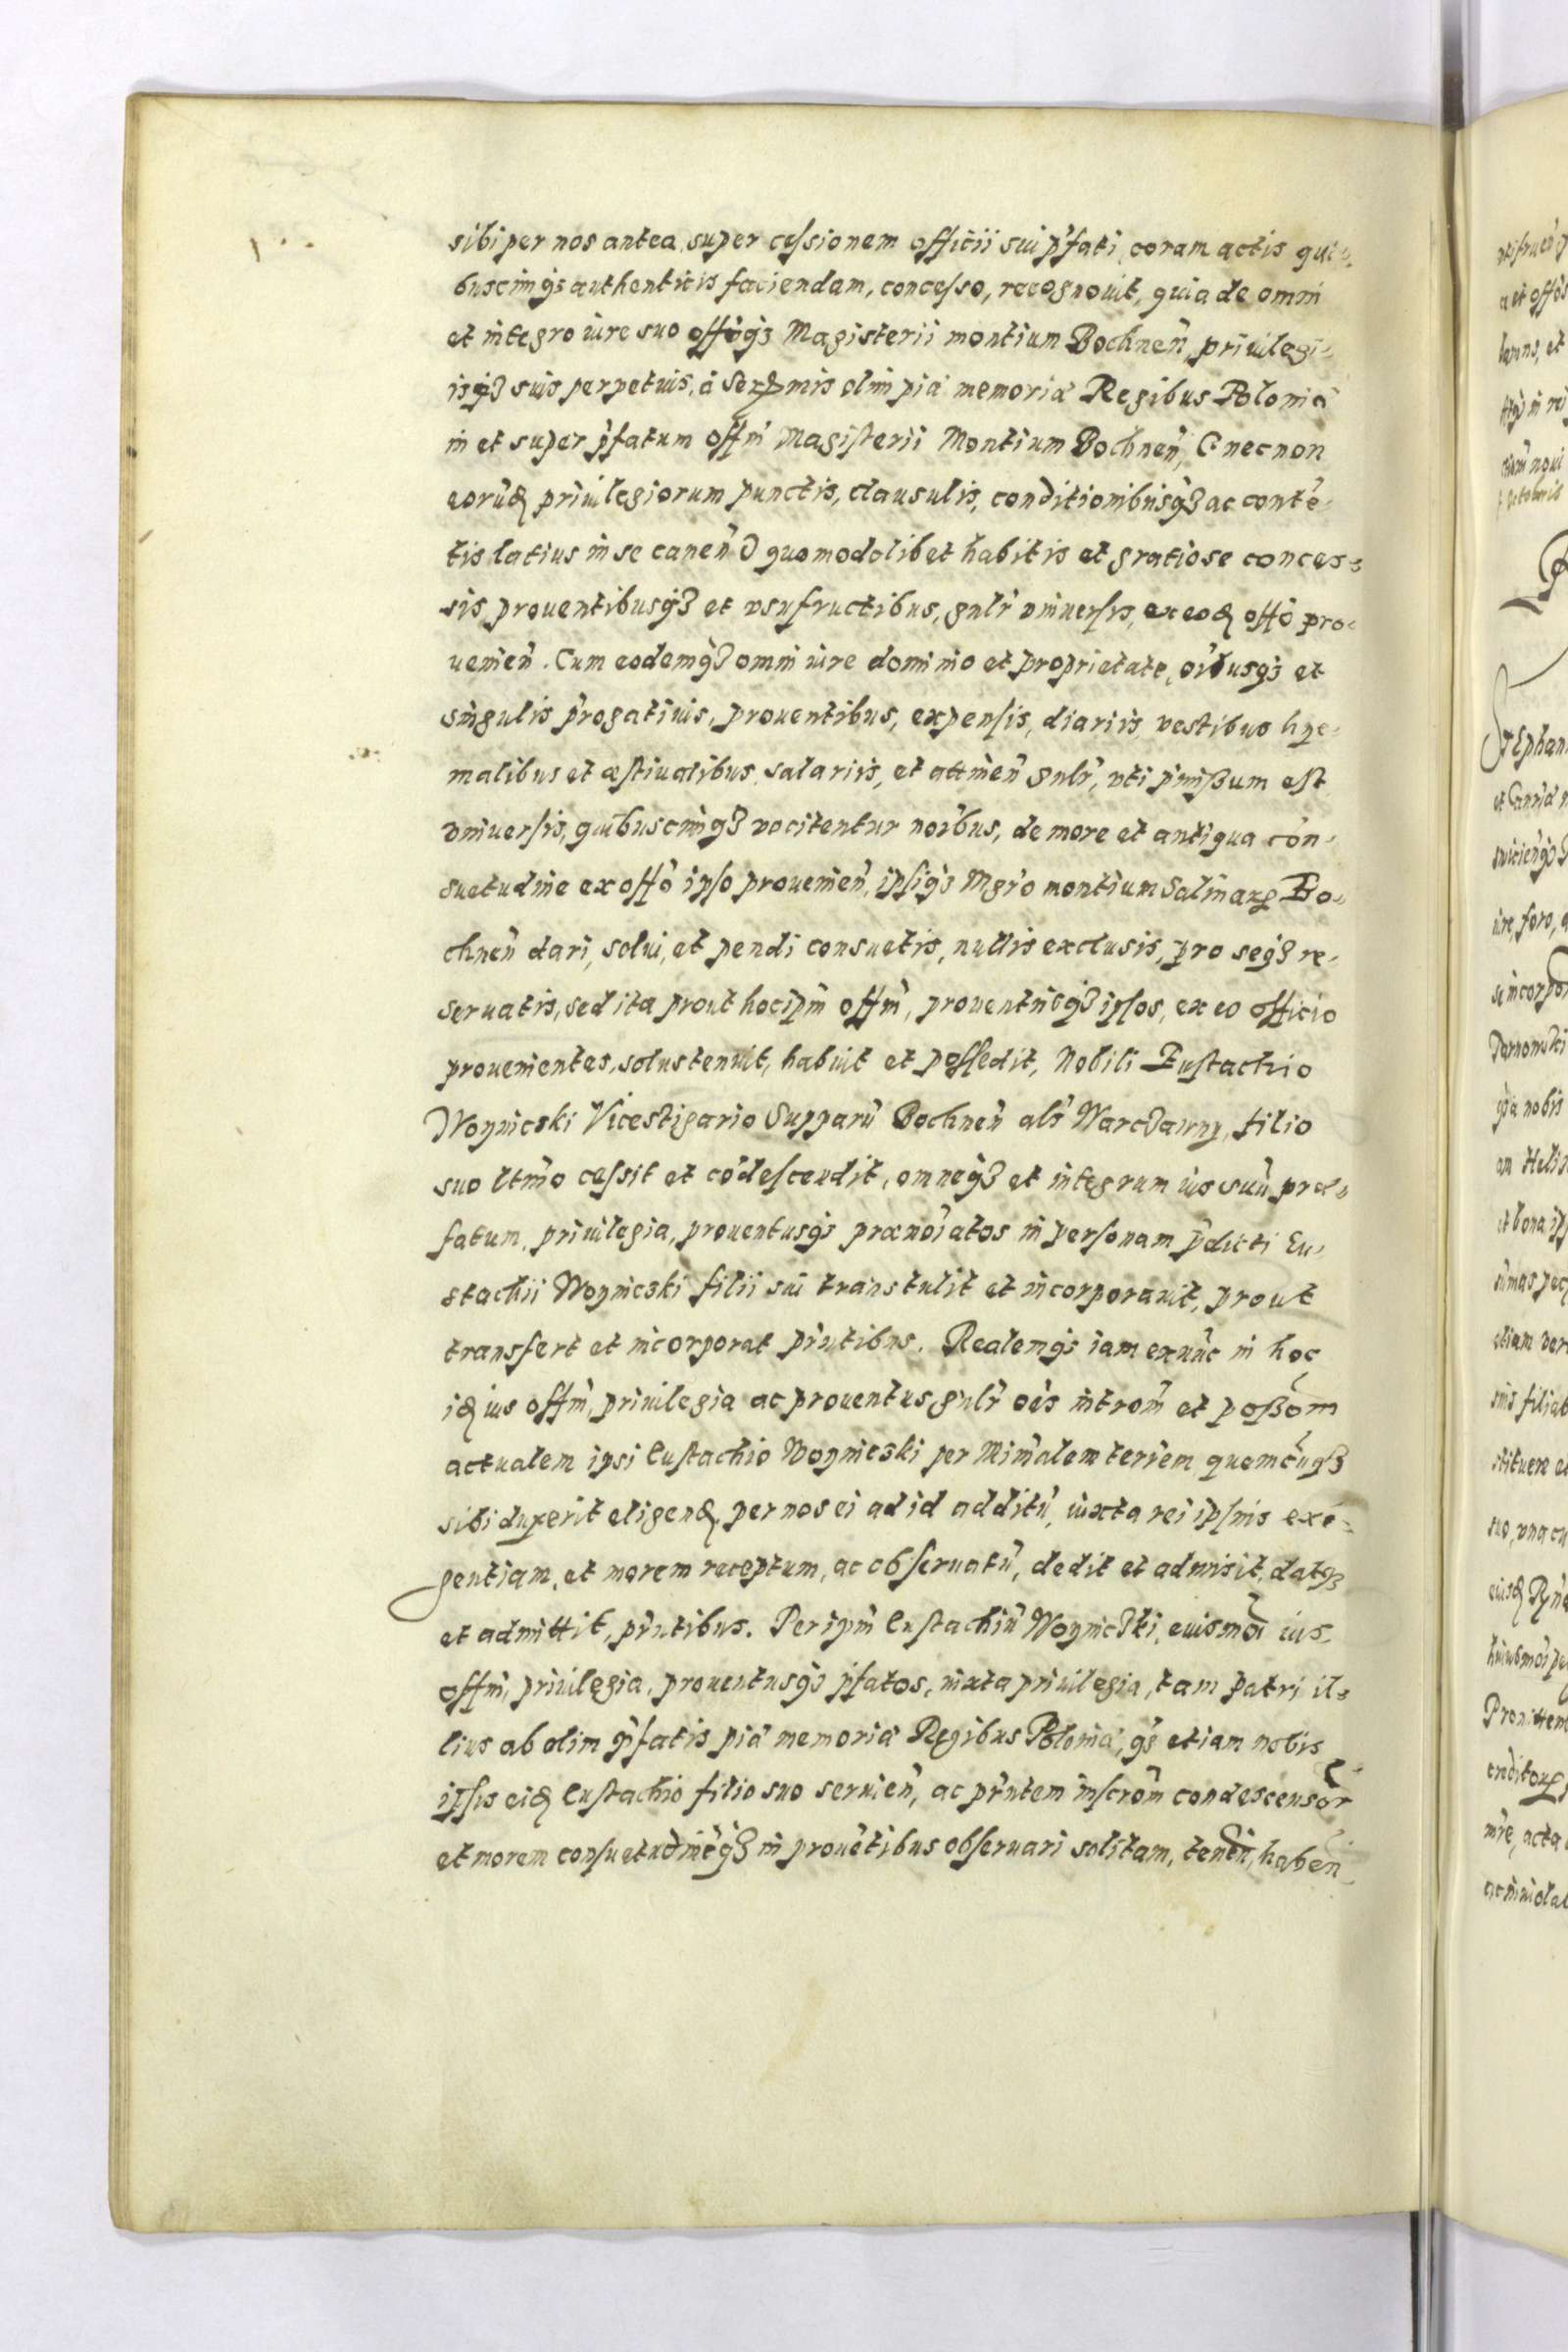 sibi per nos antea super cessionem officii sui p̃fati coram actis qui-
buscunq̃ authenticis faciendam, concesso, recognouit, quia de omni
et integro iure suo offiiq̃ Magisterii montium Bochneñ priuilegi-
isq̃ suis perpetuis, à Serẽmis olim piæ memoriæ Regibus Poloniæ
in et super p̃fatum offm̃ Magisterii Montium Bochneñ, (necnon
eorũd priuilegiorum punctis, clausulis, conditionibusq̃ ac contẽ-
tis latius in se caneñ) quomodolibet habitis et gratiose conces-
sis, prouentibusq̃ et vsufructibus, gnlr̃ vniuersis, ex eod offõ pro-
uenieñ. Cum eodemq̃ omni iure dominio et proprietate, oĩbusq̃ et
singulis p̃rogatiuis, prouentibus, expensis, diariis, vestibus hye-
malibus et æstiualibus salariis, et attineñ gnlr̃, vti p̃missum est
vniuersis, quibuscunq̃ vocitentur noĩbus, de more et antiqua cõn-
suetudine ex offõ ipso prouenieñ, ipsiq̃ Mgrõ montium Salinarum Bo-
chneñ dari, solui, et pendi consuetis, nullis exclusis, pro seq̃ re-
seruatis, sed ita prout hocip̃m offm̃, prouentusq̃ ipsos, ex eo officio
prouenientes, solus tenuit, habuit et possedit, Nobili Eustachio
Woynicski Vicestigario Supparũ Bochneñ als̃ Warcdawny, filio
suo ltmõ cessit et cõdescendit, omneq̃ et integrum ius suũ præ-
fatum, priuilegia, prouentusq̃ prænoĩatos in personam p̃dicti Eu-
stachii Woynicski filii sui transtulit et incorporauit, prout
transfert et incorporat p̃ntibus. Realemq̃ iam exnũc in hoc
id ius offm̃, priuilegia ac prouentus gnlr̃ oẽs introm̃ et possõm
actualem ipsi Eustachio Woynicski per Minĩalem terrẽm quemcũq̃
sibi duxerit eligend, per nos ei ad id additũ, iuxta rei ipsius exi-
gentiam, et morem receptum, ac obseruatũ, dedit et admisit, datq̃
et admittit, p̃ntibus. Per ip̃m Eustachiũ Woynicski, euismõi ius
offm̃, priuilegia, prouentusq̃ p̃fatos, iuxta priuilegia, tam patri il-
lius ab olim p̃fatis piæ memoriæ Regibus Poloniæ, q̃ etiam nobis
ipsis eid Eustachio filio suo seruieñ, ac p̃ntem inscrõm condescensor
et morem consuetudinẽq̃ in prouẽtibus obseruari solitam, teneñ, habeñ